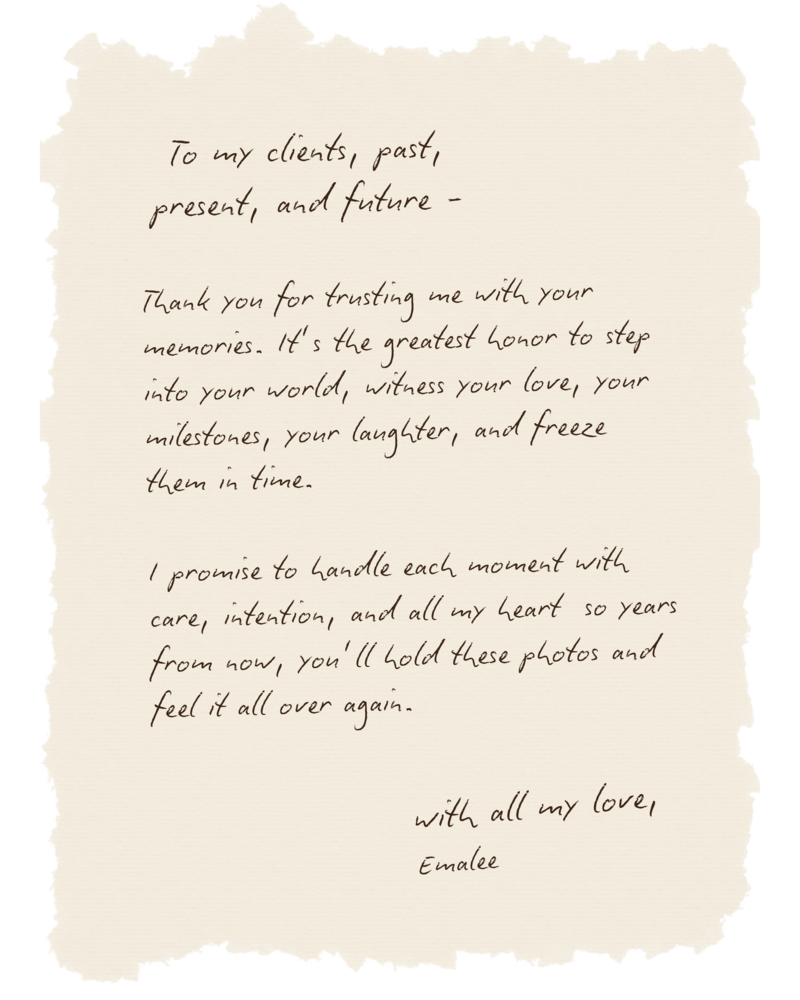 To my clients, past,
present, and future -
Thank you for trusting me with your
memories. It's the greatest honor to step
into your world, witness your love, your
milestones, your laughter, and freeze
them in time.
I promise to handle each moment with
care, intention, and all my heart so years
from now, you'll hold these photos and
feel it all over again.
with all my love,
Emalee